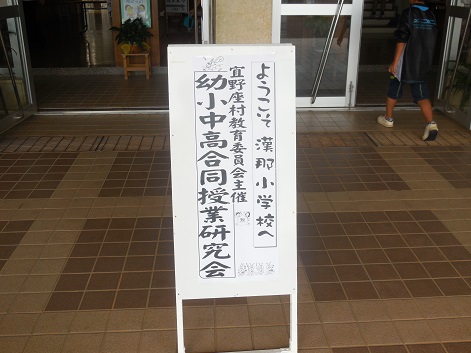 ようこそ 漢那小学校へ
宜野座村教育委員会主催
幼小中高合同授業研究会